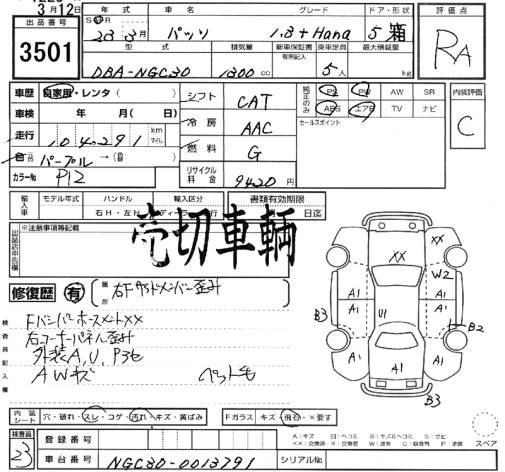 3月12日
出品番号
3501
年式 車名 グレード ドア・形状 評価点
23 3月 パッソ 1.3+Hana 5 箱
RA
型式 排気量 新車保証書 有照記入 乗車定員 最大積載量
DBA-NGC30 1300cc 5人 kg
車歴 自家用・レンタ( )
車検 年 月( 日)
走行 104,291 km マイル
色 パープル →( )
カラーNo P12
シフト CAT
冷房 AAC
燃料 G
リサイクル料金 9420円
純正のみ PS PW AW SR
ABS エアB TV ナビ
セールスポイント
内装評価
C
輸入車 モデル年式 ハンドル 輸入区分 書類有効期限
右H・左H ディーラー 日迄
出品店申告欄 ※注意事項等記載
売切車輌
修復歴 有 箇所 右Fサイドメンバー歪み
検査員記入欄
FバンパーホースメントXX
右コーナーパネル歪み
外装A,U,P3も
AWキズ
ペット毛
XX XX
W2
A1 A1 A1 A1
B3 U1 B2
A1 A1
A1
B3
内装シート 穴・破れ・スレ・コゲ・汚れ・キズ・黄ばみ Fガラス キズ・飛石・×要す
A:キズ U:ヘコミ B:キズ&ヘコミ S:サビ
スペア
検査員
23
登録番号
車台番号 NGC30-0013791 シリアルNo.